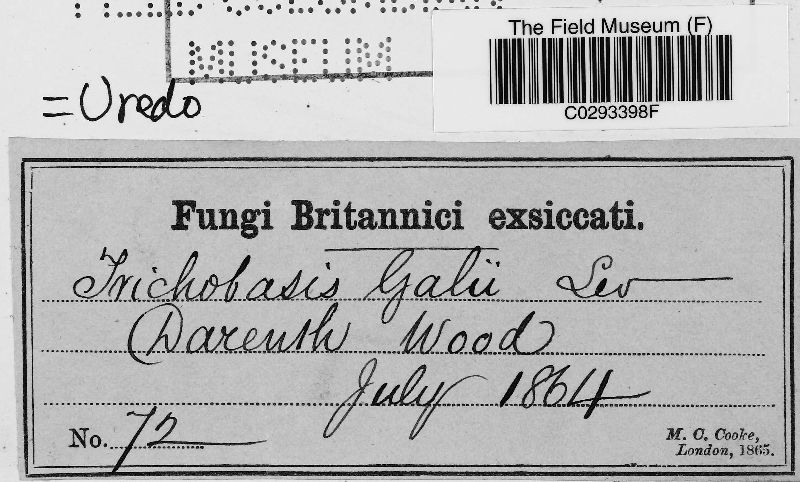 MUSEUM
The Field Museum (F)
C0293398F
=Uredo
Fungi Britannici exsiccati.
Trichobasis Galii Lev
Darenth Wood
July 1864
No. 72
M. C. Cooke,
London, 1865.